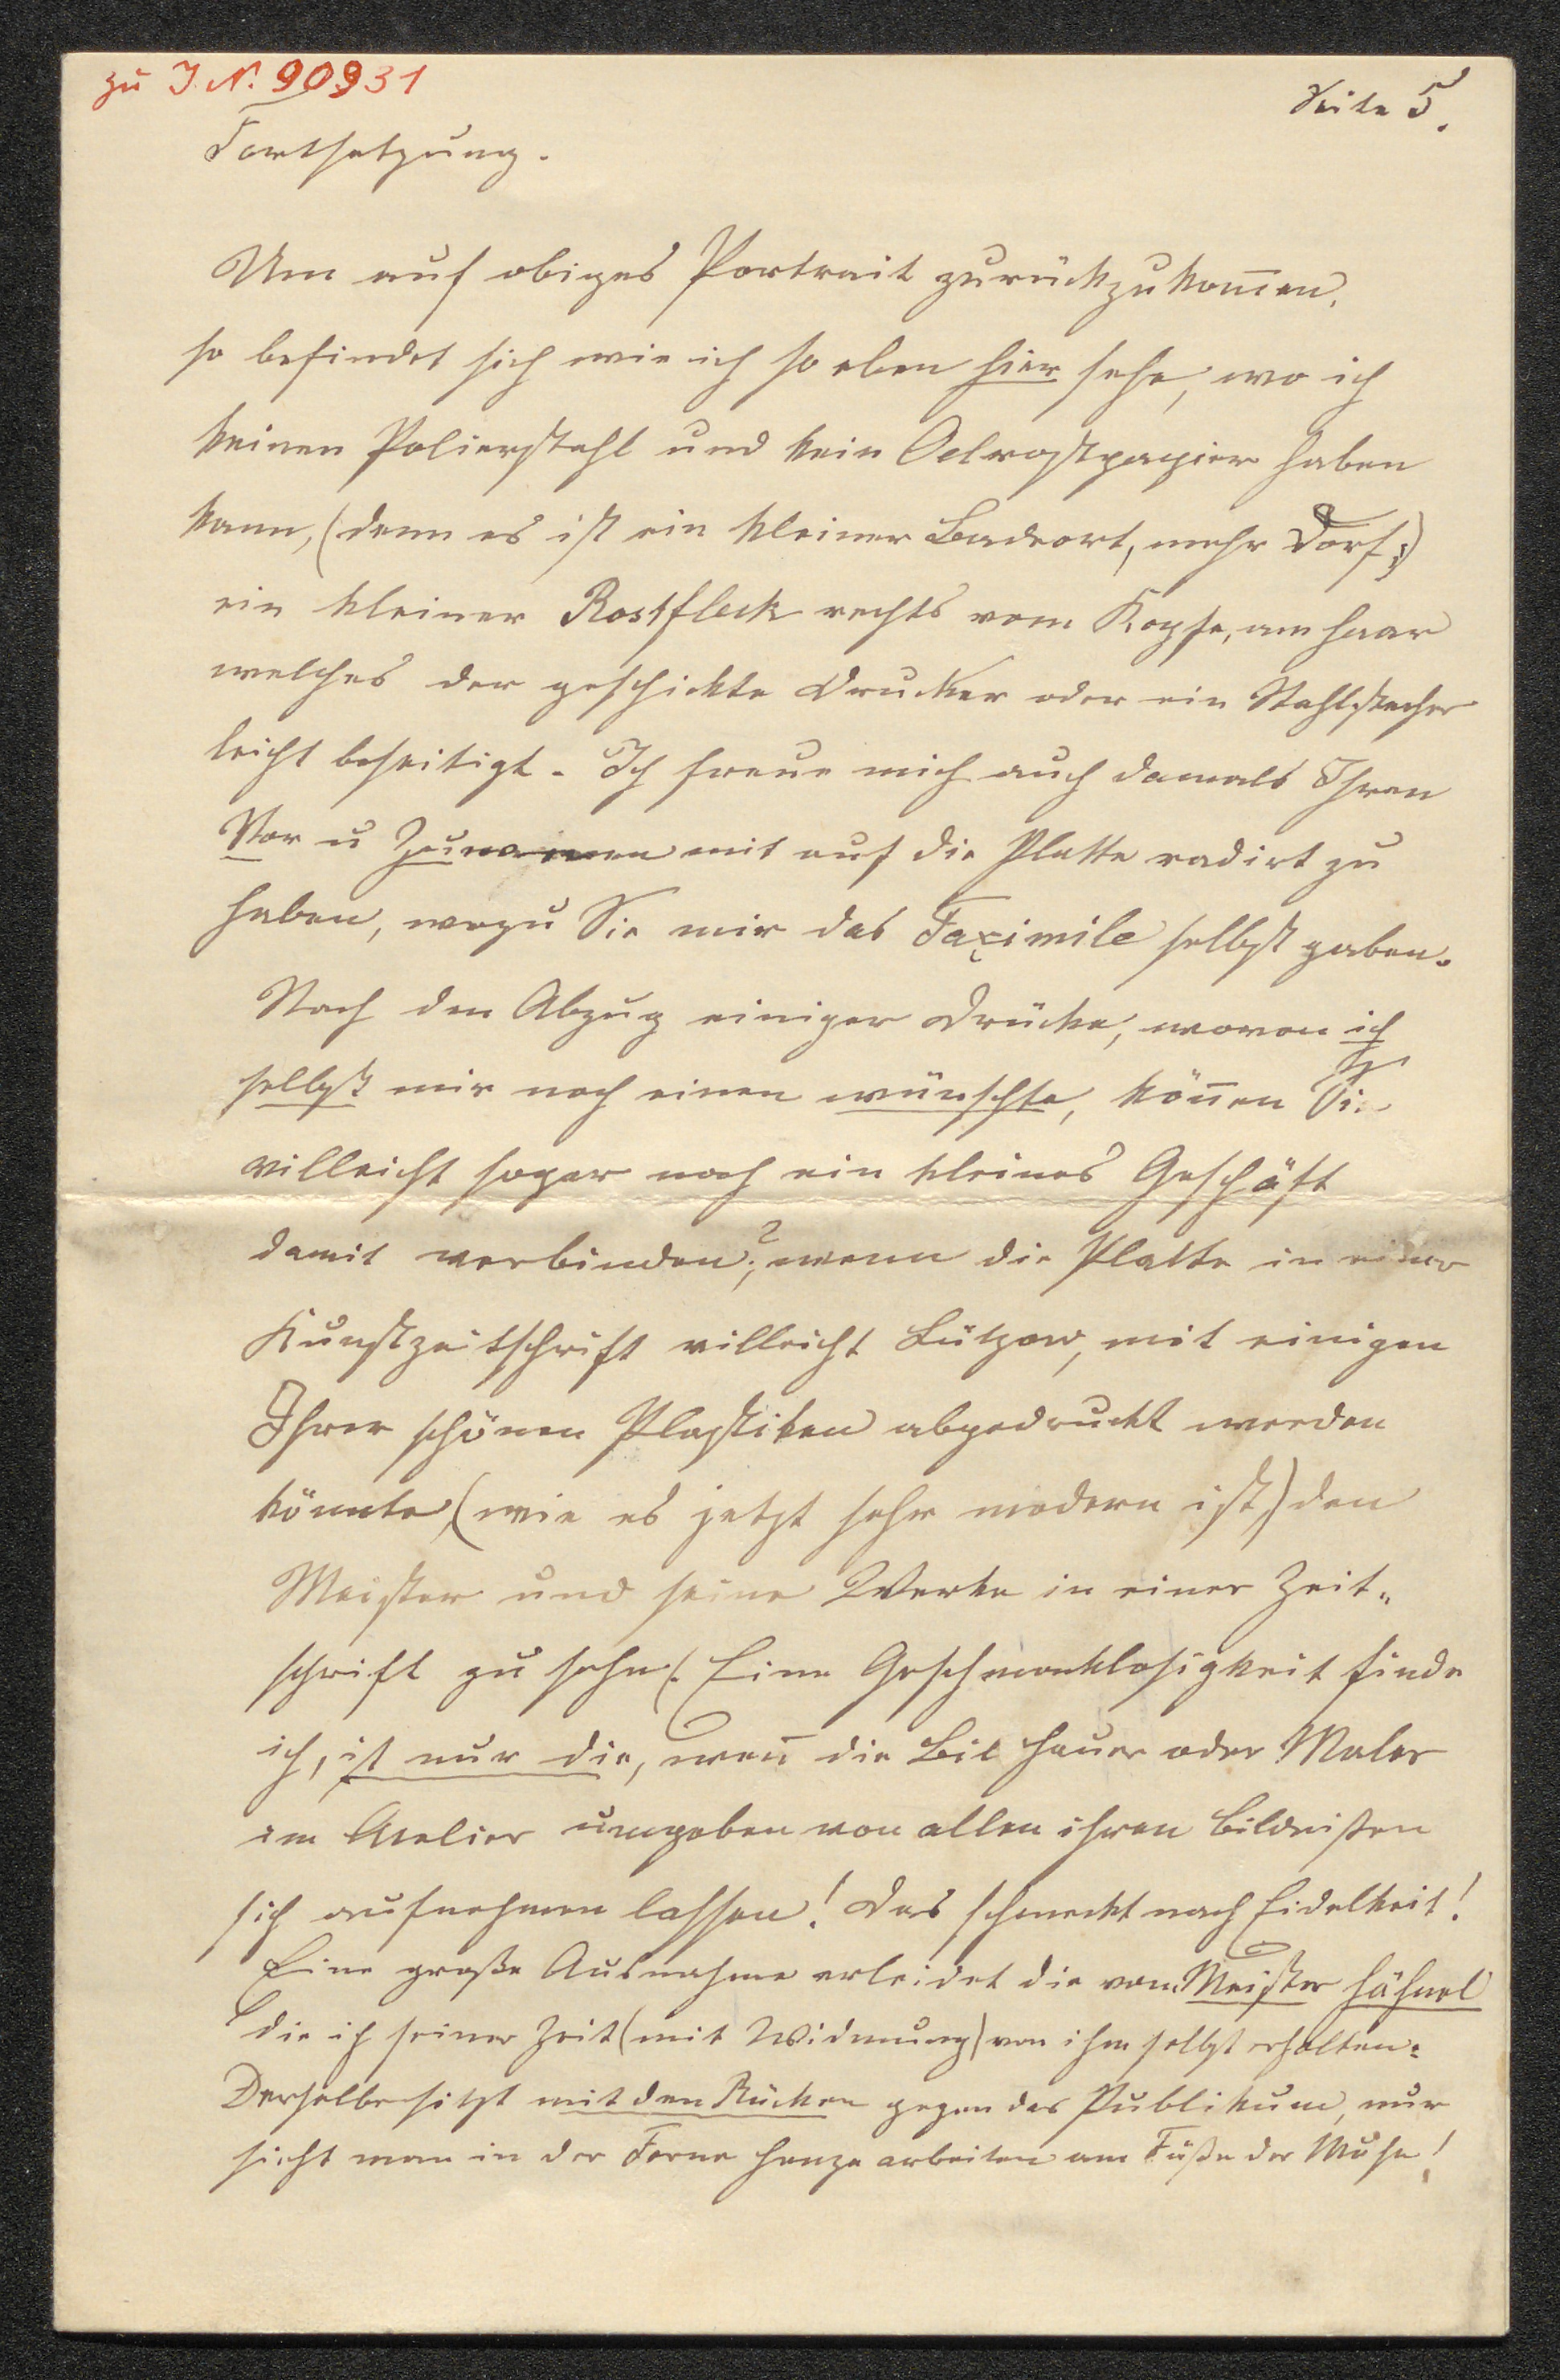 zu I. N. 90931
Seite 5.
Fortsetzung.
Um auf obiges Portrait zurückzukom̄en,
so befindet sich wie ich so eben hier sehe, wo ich
keinen Polierstahl und kein Oelrostpapier haben
kann, (denn es ist ein kleiner Badeort, mehr Dorf;)
ein kleiner Rostfleck rechts vom Kopfe, am Haar
welches der geschickte Drucker oder ein Stahlstecher
leicht beseitigt. Ich freue mich auch damals Ihren
Vor u Zunamen mit auf die Platte radirt zu
haben, wozu Sie mir das Faximile selbst gaben.
Nach den Abzug einiger Drücke, wovon ich
selbst mir noch einen wünschte, kön̄en Sie
villeicht sogar noch ein kleines Geschäft
damit verbinden?; wenn die Platte in einer
Kunstzeitschrift villeicht Lützow, mit einigen
Ihrer schönen Plastiken abgedruckt werden
könnte, (wie es jetzt sehr modern ist,) den
Meister und seine Werke in einer Zeit-
schrift zu sehn. (Eine Geschmacklosigkeit finde
ich, ist nur die, wen̄ die Bilhauer oder Maler
im Atelier umgeben von allen ihren Bildnißen
sich aufnehmen lassen! Das schmeckt nach Eidelkeit!
Eine große Ausnahme erleidet die vom Meister Hähnel
die ich seiner Zeit (mit Widmung) von ihm selbst erhalten.
Derselbe sitzt mit den Rücken gegen das Publikum, nur
sieht man in der Ferne Henze arbeiten am Füße der Muse!